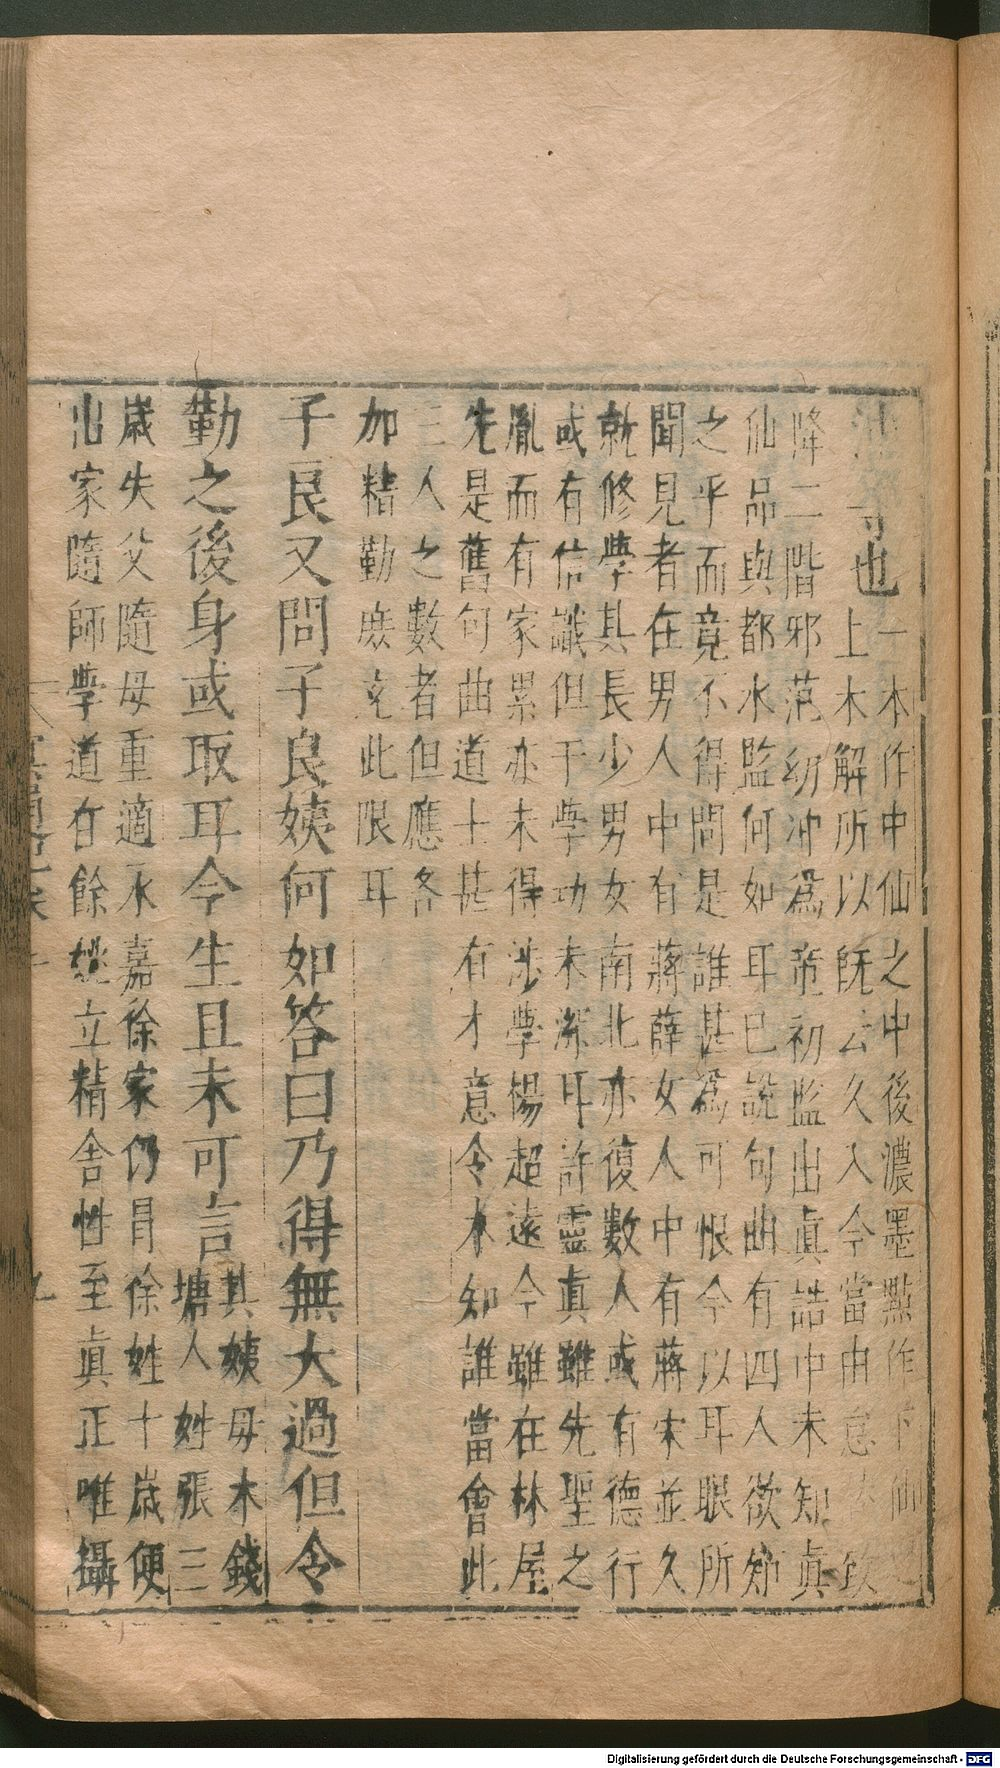 等也
一本作中仙之中後濃墨點作下仙
上木解所以既云久入今當由
降二階邪范幼沖為帝初監出真誥中未知真
仙品與都水監何如耳已說句曲有四人欲知
之乎而竟不得問是誰甚為可恨今以耳眼所
聞見者在男人中有蔣薛女人中有蔣宋並久
就修學其長少男女南北亦復數人或有德行
或有信識但于學功未深耳許靈真雖先聖之
胤而有家累亦未得涉學楊超遠今雖在林屋
先是舊句曲道士甚有才意令未知誰當會此
三人之數者但應各
加精勤庶充此限耳
子良又問子良姨何如答曰乃得無大過但令
勤之後身或取耳今生且未可言
其姨母本錢
塘人姓張三
歲失父隨母重適永嘉徐家仍冒徐姓十歲便
出家隨師學道在餘姚立精舍性至真正唯攝
冥通記卷
九
Digitalisierung gefördert durch die Deutsche Forschungsgemeinschaft - DFG